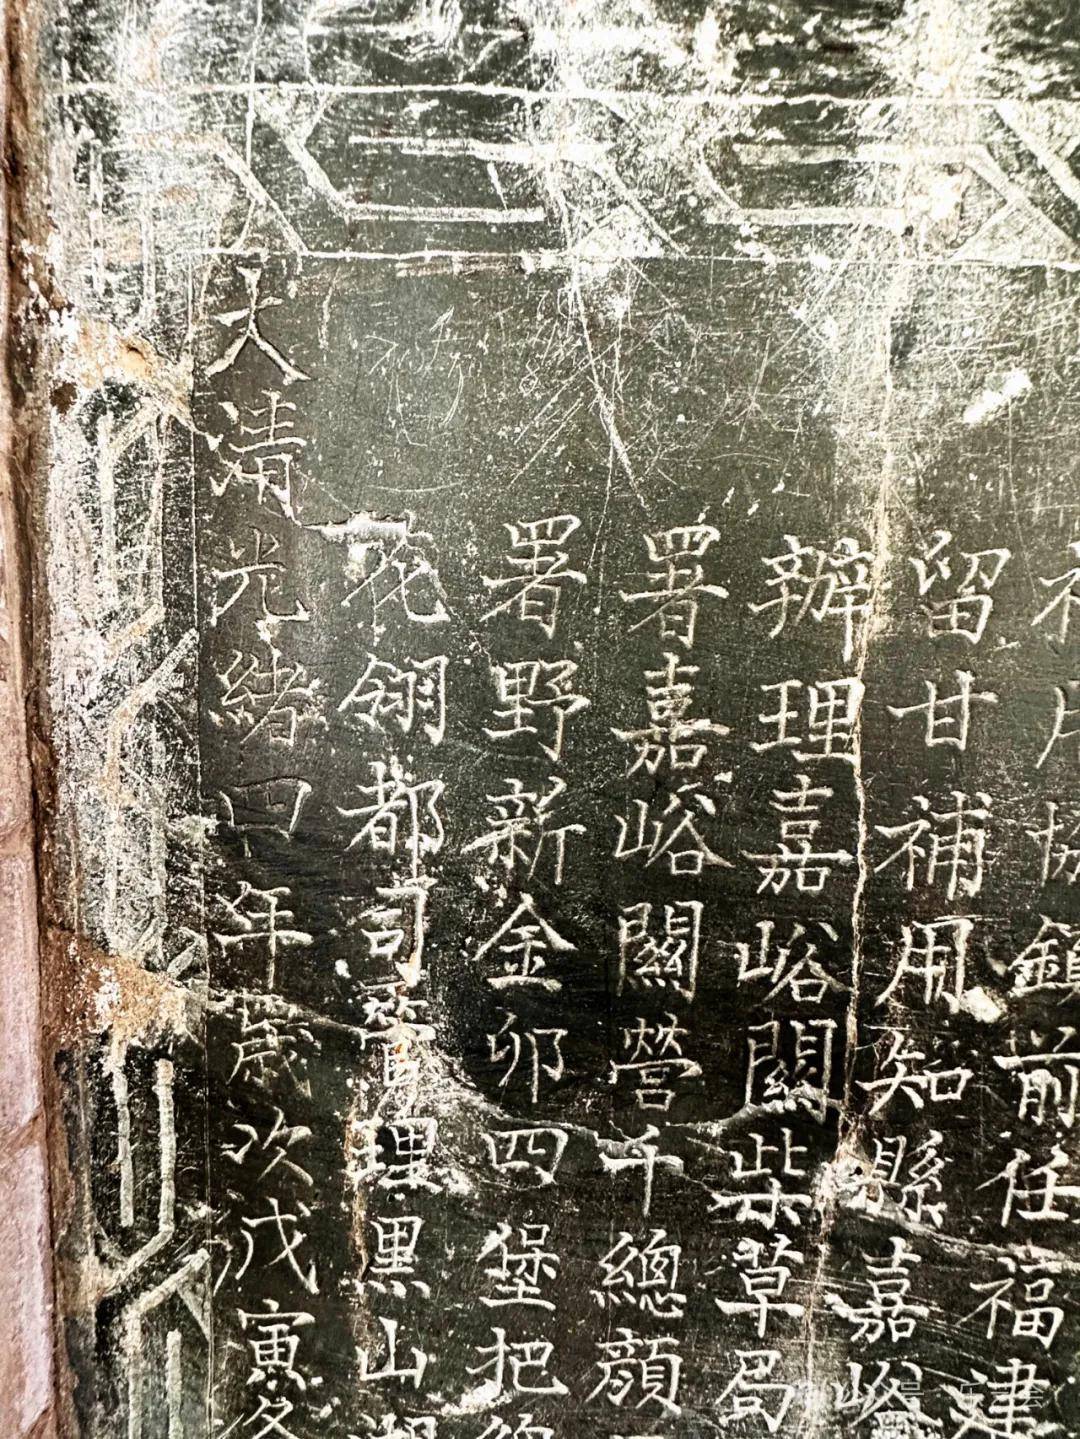 協鎮前任福建
留甘補用知縣嘉峪
辦理嘉峪關柴草局
署嘉峪關營千總顏
署野新金卯四堡把
花翎都司管理黑山湖
大清光緒四年歲次戊寅冬